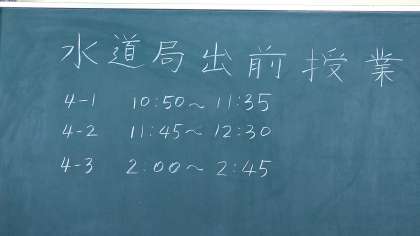 水道局出前授業
4-1 10:50~ 11:35
4-2 11:45~ 12:30
4-3 2:00~ 2:45